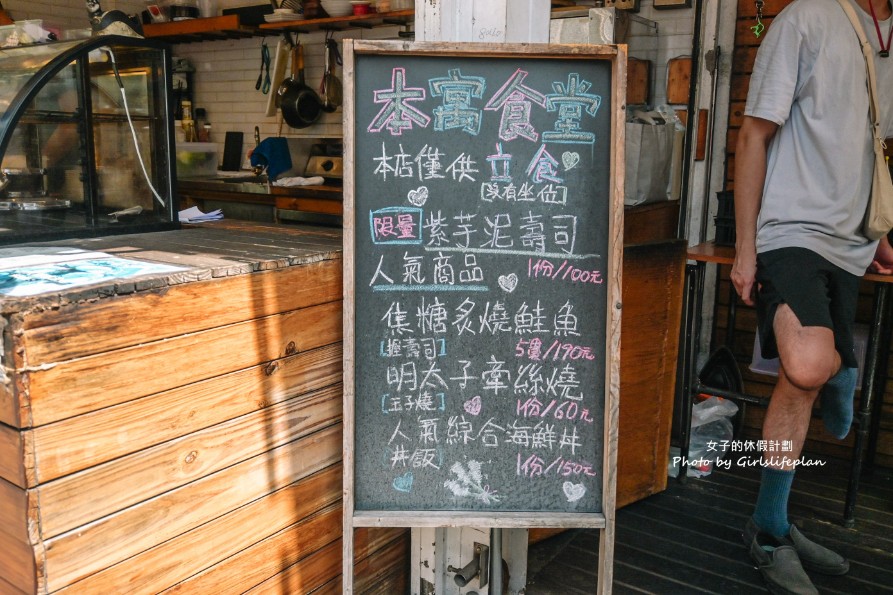 本寓食堂
本店僅供立食
[沒有坐位]
限量 紫芋泥壽司
人氣商品 1份/100元
焦糖炙燒鮭魚
[握壽司] 5貫/190元
明太子牽絲燒
[玉子燒] 1份/60元
人氣綜合海鮮丼
丼飯 1份/150元
女子的休假計劃
Photo by Girlslifeplan